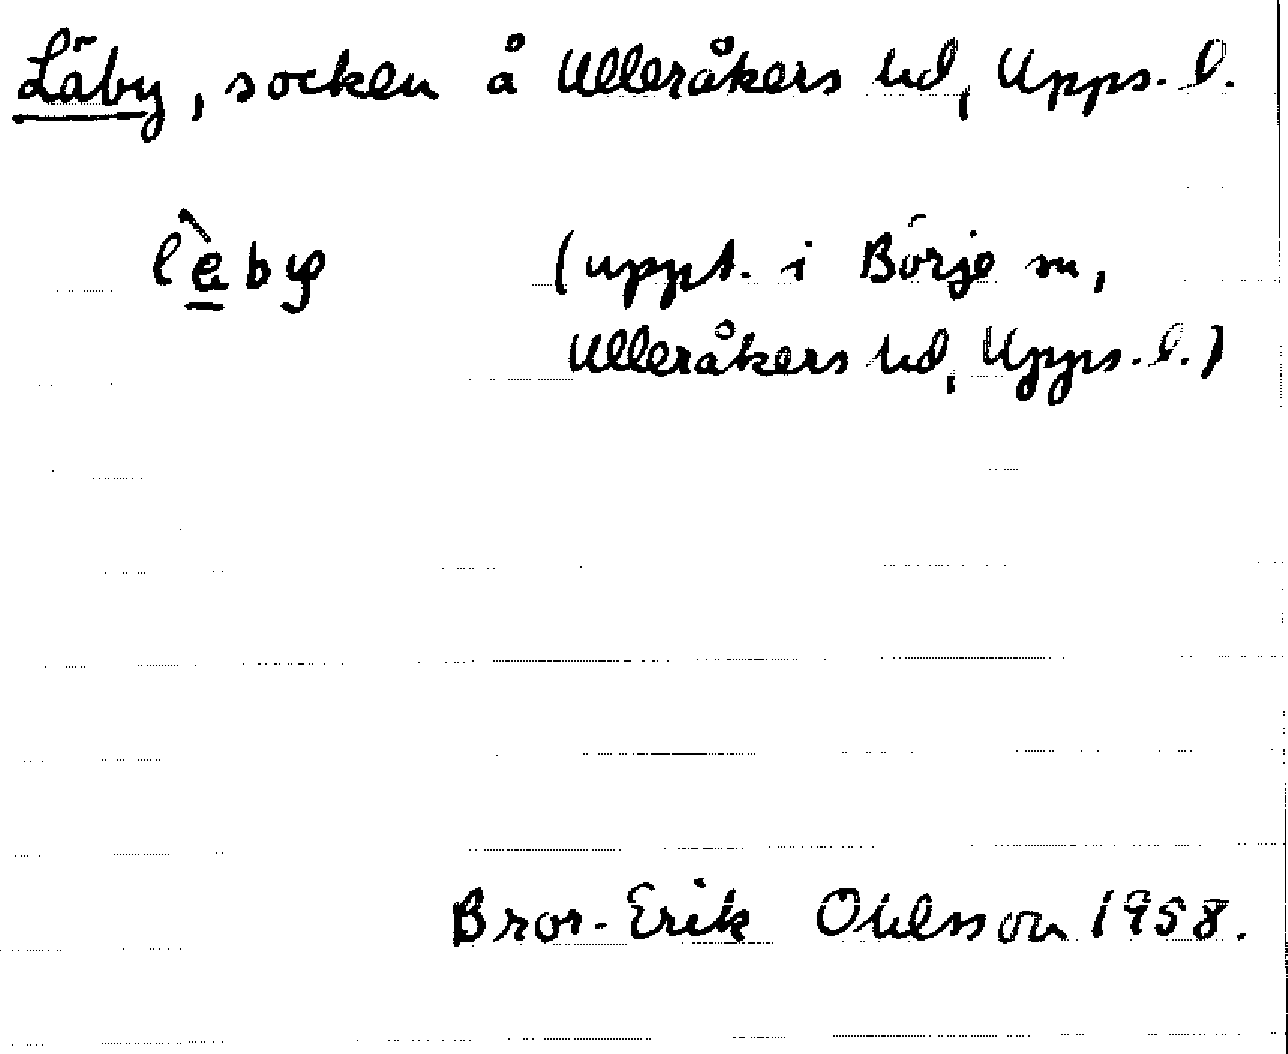 Läby, socken å Ulleråkers hd, Upps. l.
lèby (uppt. i Börje sn,
Ulleråkers hd, Upps. l.)
Bror-Erik Ohlsson 1958.